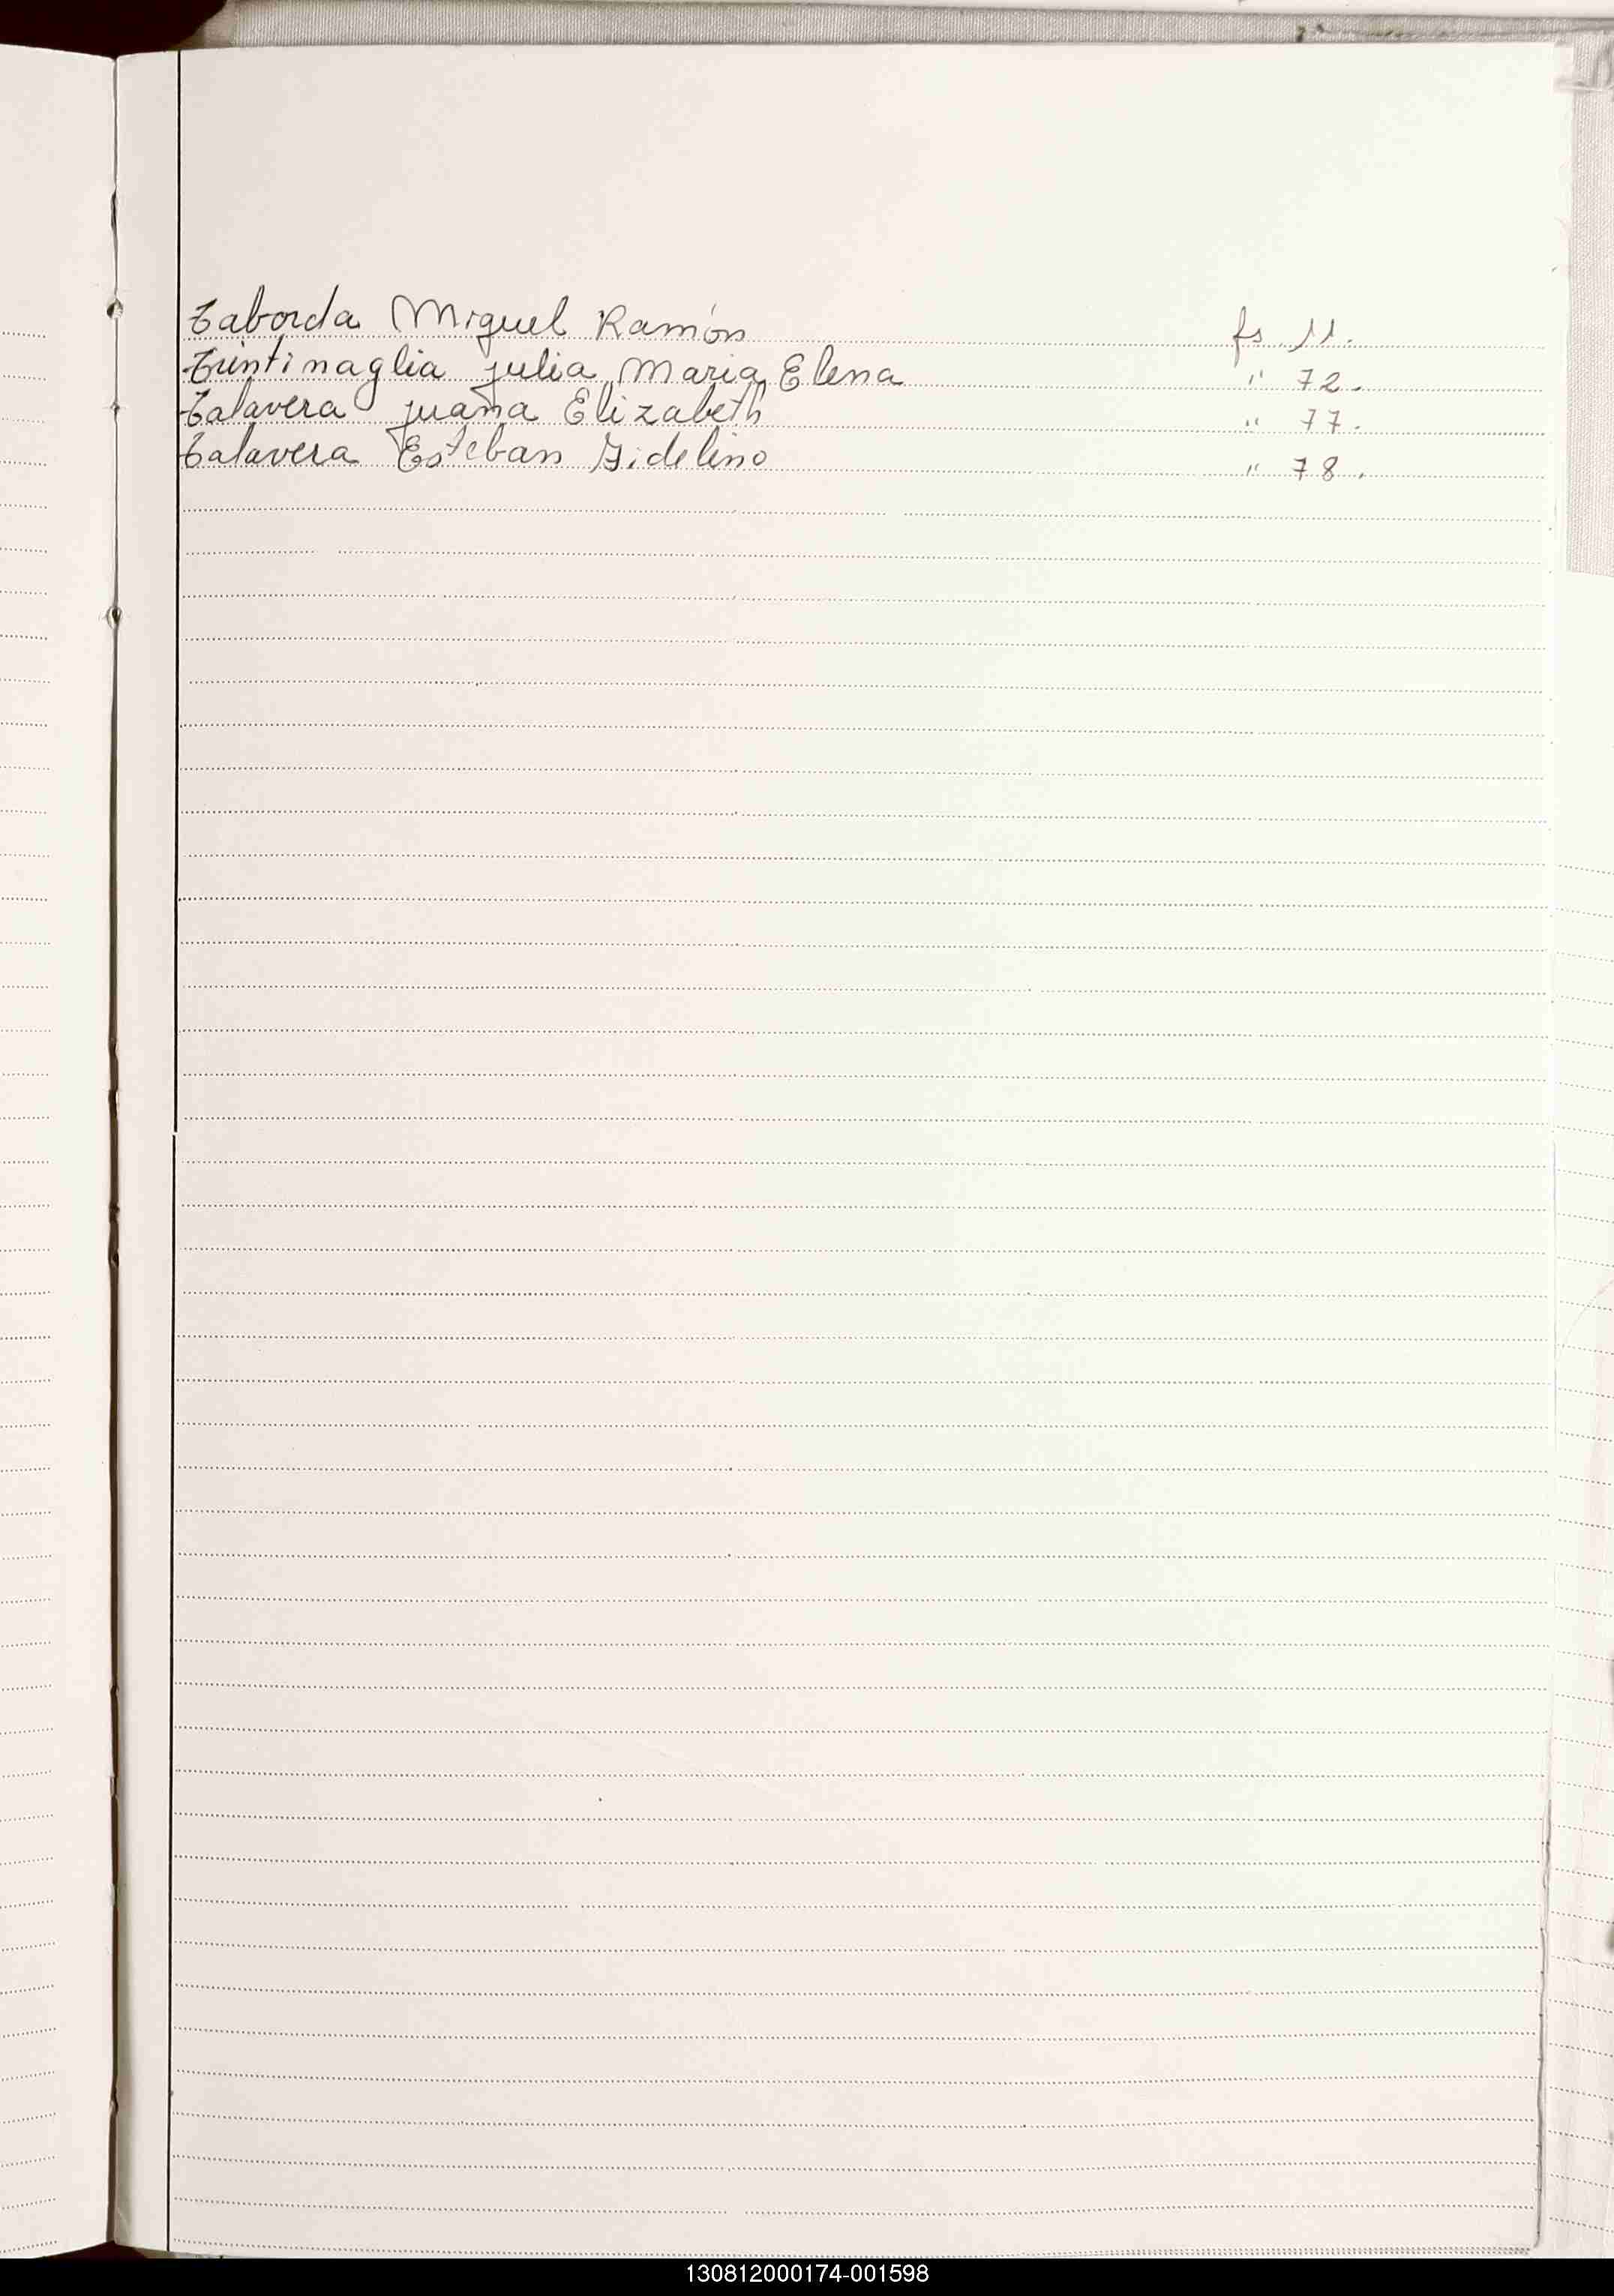 Taborda Miguel Ramón fs. 11.
Trintinaglia Julia Maria Elena " 72.
Talavera Juana Elizabeth " 77.
Talavera Esteban Fidelino " 78.
130812000174-001598